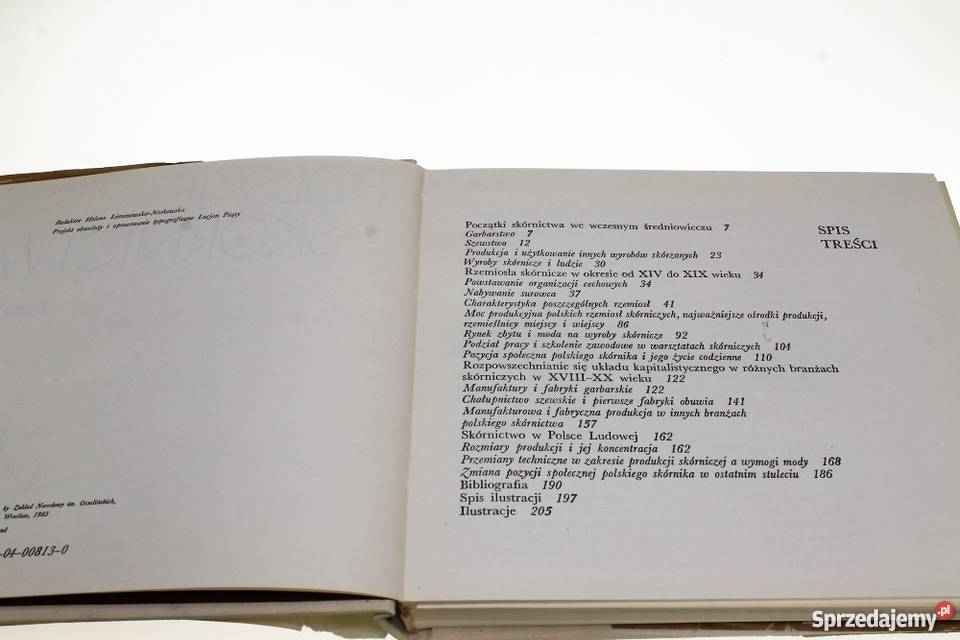 Redaktor Helena Limonowska-Noskowska
Projekt obwoluty i opracowanie typograficzne Lucjan Piąty
by Zakład Narodowy im. Ossolińskich,
Wrocław, 1983
-04-00813-0
SPIS
TREŚCI
Początki skórnictwa we wczesnym średniowieczu 7
Garbarstwo 7
Szewstwo 12
Produkcja i użytkowanie innych wyrobów skórzanych 23
Wyroby skórnicze i ludzie 30
Rzemiosła skórnicze w okresie od XIV do XIX wieku 34
Powstawanie organizacji cechowych 34
Nabywanie surowca 37
Charakterystyka poszczególnych rzemiosł 41
Moc produkcyjna polskich rzemiosł skórniczych, najważniejsze ośrodki produkcji,
rzemieślnicy miejscy i wiejscy 86
Rynek zbytu i moda na wyroby skórnicze 92
Podział pracy i szkolenie zawodowe w warsztatach skórniczych 104
Pozycja społeczna polskiego skórnika i jego życie codzienne 110
Rozpowszechnianie się układu kapitalistycznego w różnych branżach
skórniczych w XVIII–XX wieku 122
Manufaktury i fabryki garbarskie 122
Chałupnictwo szewskie i pierwsze fabryki obuwia 141
Manufakturowa i fabryczna produkcja w innych branżach
polskiego skórnictwa 157
Skórnictwo w Polsce Ludowej 162
Rozmiary produkcji i jej koncentracja 162
Przemiany techniczne w zakresie produkcji skórniczej a wymogi mody 168
Zmiana pozycji społecznej polskiego skórnika w ostatnim stuleciu 186
Bibliografia 190
Spis ilustracji 197
Ilustracje 205
Sprzedajemy.pl